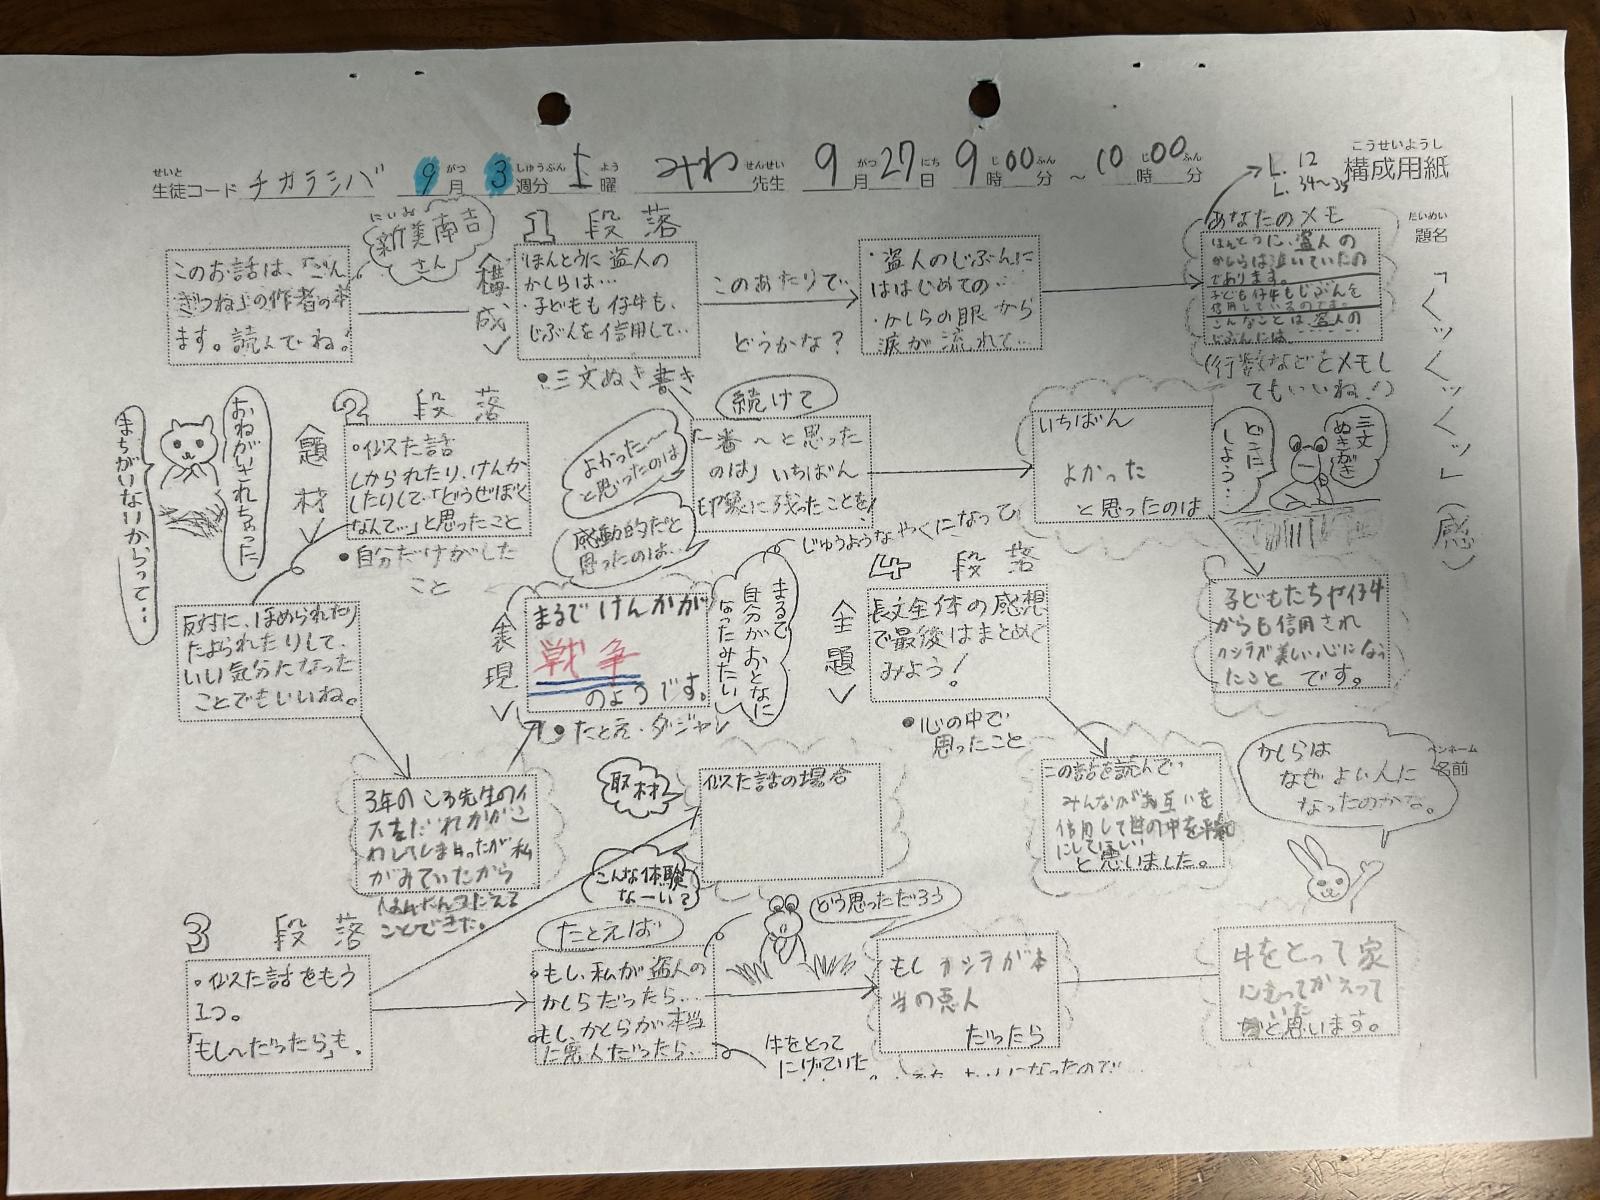 せいと
生徒コード チカラシバ 9月 がつ 3週分 しゅうぶん 土曜 よう みわ先生 せんせい 9月 がつ 27日 にち 9時 じ 00分 ふん ～ 10時 じ 00分 ふん
こうせいようし
構成用紙
L. 12
L. 34～35
だいめい
題名
「くッくッくッ」(感)
ペンネーム
名前
にいみ
新美南吉
さん
このお話は、「ごん
ぎつね」の作者の本
ます。読んでね!
1 段落
〈構成〉
・ほんとうに盗人の
かしらは…
・子どもも仔牛も、
じぶんを信用して…
・三文ぬき書き
このあたりで、
どうかな?
・盗人のじぶんに
ははじめての…
・かしらの眼から
涙が流れて…
あなたのメモ
ほんとうに、盗人の
かしらは泣いていたの
であります。
子どもも仔牛もじぶんを
信用しているのです。
こんなことは盗人の
じぶんには
(行数などをメモし
てもいいね!)
続けて
よかった〜
と思ったのは
感動的だと
思ったのは…
「一番〜と思った
のは」いちばん
印象に残ったことを!
いちばん
よかった
と思ったのは
どこに
しよう…
三文
ぬきがき
子どもたちや仔牛
からも信用され
カシラが美しい心になっ
たこと です。
2 段落
〈題材〉
・似た話
しかられたり、けんか
したりして「どうせぼく
なんて…」と思ったこと
・自分だけがした
こと
おねがいされちゃった
まちがいないからって…
反対に、ほめられたり
たよられたりして、
いい気分になった
ことでもいいね。
3年のころ先生のイ
スをだれかがこ
わしてしまったが私
がみていたから
はんにんつたえる
ことできた。
〈表現〉
まるでけんかが
戦争
のようです。
・たとえ・ダジャレ
まるで
自分がおとなに
なったみたい
じゅうようなやくになって
4 段落
〈主題〉
長文全体の感想
で最後はまとめて
みよう!
・心の中で
思ったこと
この話を読んで、
みんながお互いを
信用して世の中を平和
にしてほしい
と思いました。
かしらは
なぜよい人に
なったのかな。
3 段落
・似た話をもう
1つ。
「もし〜だったら」も。
取材
似た話の場合
こんな体験
なーい?
たとえば
・もし、私が盗人の
かしらだったら…
もし、かしらが本当
に悪人だったら…
どう思っただろう
牛をとって
にげていた
もしカシラが本
当の悪人
だったら
牛をとって家
にもってかえって
いた
だと思います。